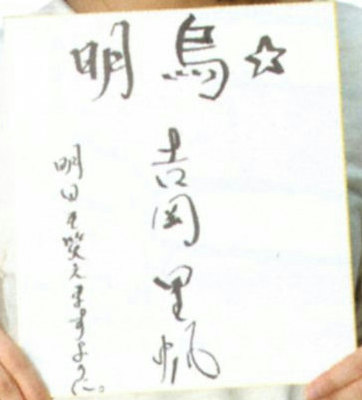 明烏☆
吉岡里帆
明日も笑えますように。